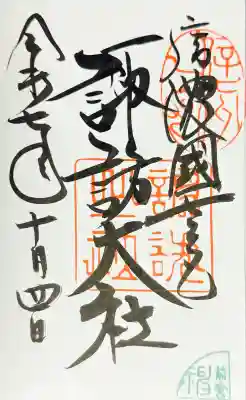 信濃國一之宮
諏訪大社
令和七年
十月四日